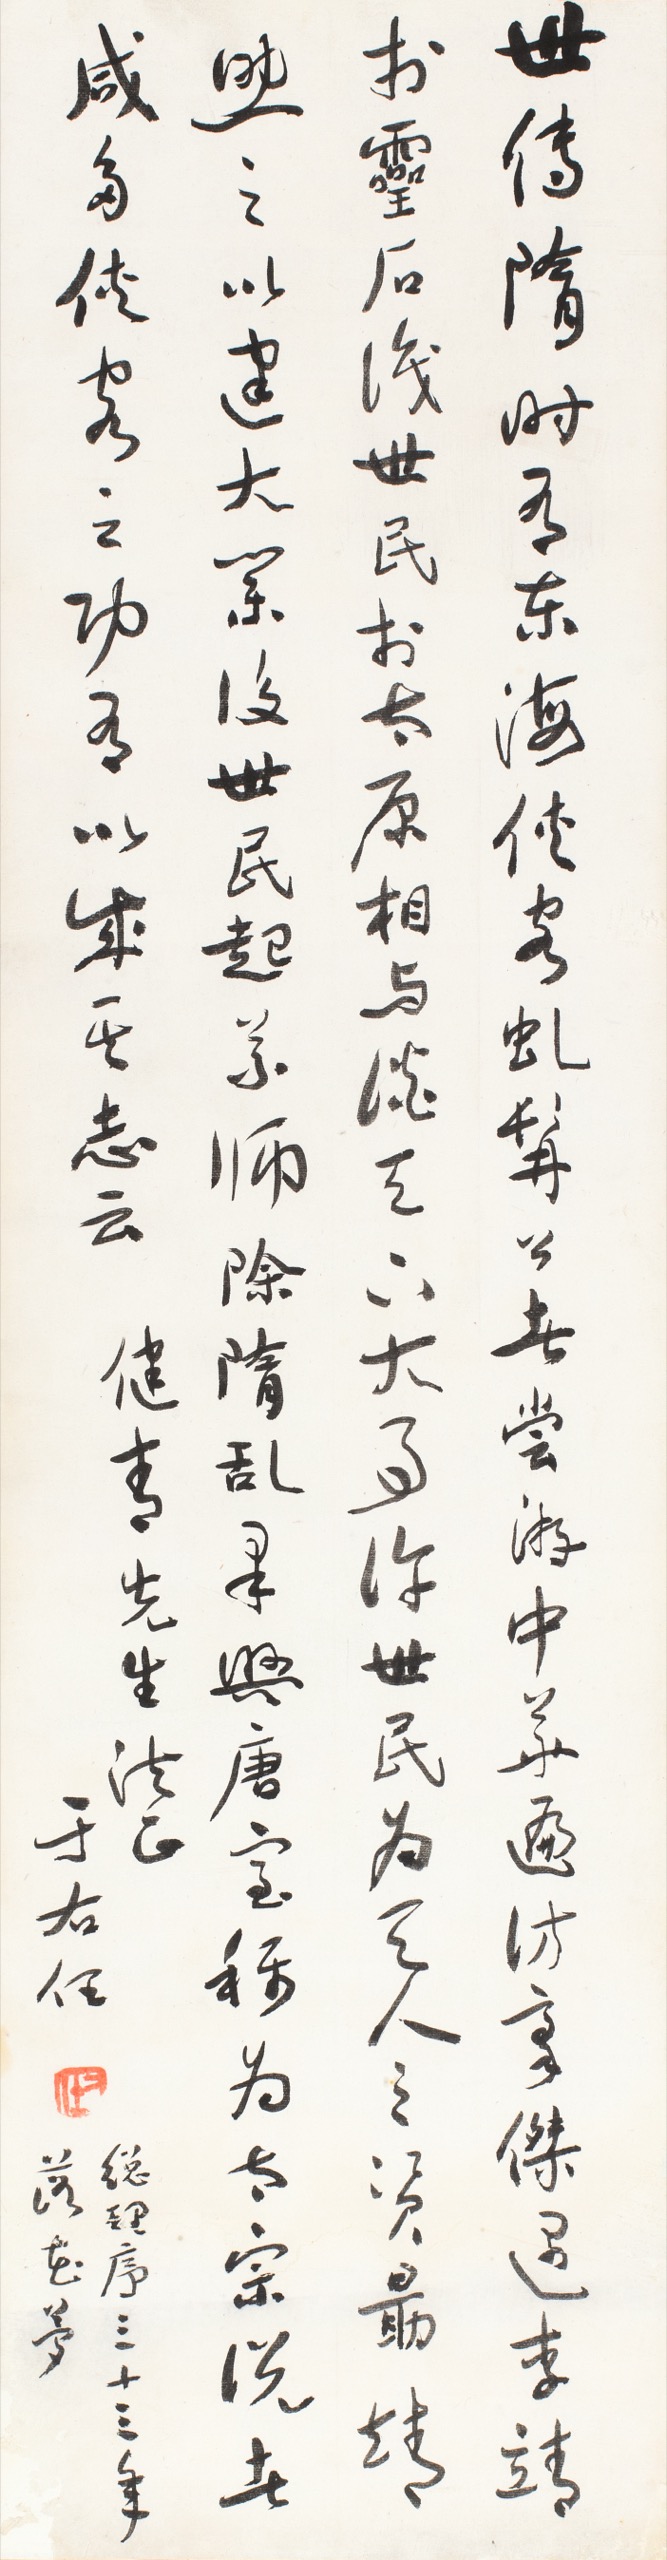 世傳隋時有東海俠客虬髯公者嘗游中華遍訪豪傑遇李靖
於靈石識世民於太原相與談天下大事許世民為天人之資勗靖
興之以建大業後世民起義師除隋亂果興唐室稱為太宗說者
咸多俠客之功有以成其志云
健青先生法正
于右任
總理序三十三年
落花夢